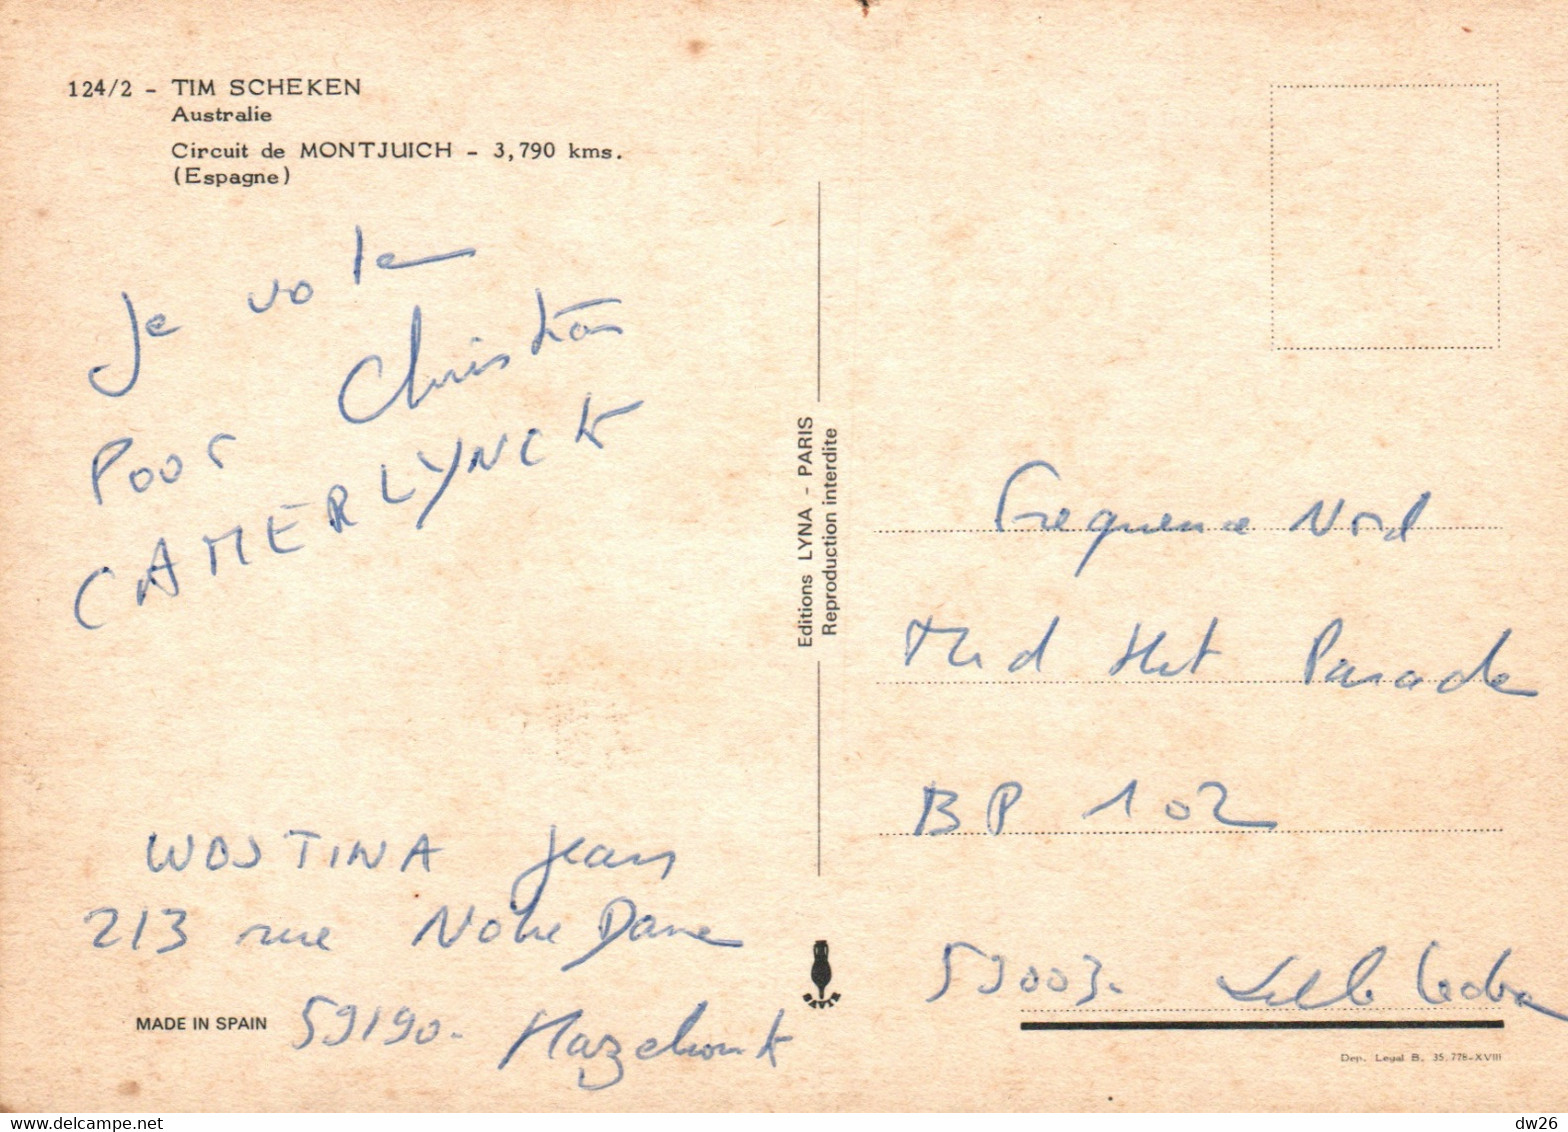 124/2 - TIM SCHEKEN
Australie
Circuit de MONTJUICH - 3,790 kms.
(Espagne)
Je vote
pour Christian
CAMERLYNCK
WOSTINA Jean
213 rue Notre Dame
59190. Hazebrouck
MADE IN SPAIN
Editions LYNA - PARIS
Reproduction interdite
Frequence Nord
Hit Parade
BP 102
59003. Lille Cedex
Dep. Legal B. 35.778-XVIII
dw26